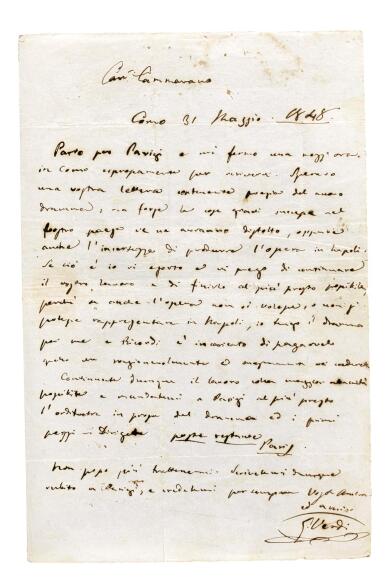 Car. Cammarano
Como 31 Maggio 1848.
Parto per Parigi e mi fermo una mezz'ora
in Como espressamente per scrivervi. Speravo
una vostra lettera contenente programma del nuovo
dramma, ma forse le cose gravi successe nel
vostro paese ve ne avranno distolto, oppure
anche l'incertezza di produrre l'opera in Napoli.
Se ciò è io vi esorto e vi prego di continuare
il vostro lavoro e di finirlo al più presto possibile,
perché se anche l'opera non si volesse, o non si
potesse rappresentare in Napoli, io tengo il dramma
per me e Ricordi è incaricato di pagarvelo
Continuate dunque il lavoro colla maggior alacrità
possibile e mandatemi a Parigi al più presto
l'orditura in prosa del dramma ed i primi
pezzi. Dirigete poste restante
Parigi
Non posso più trattenermi. Scrivetemi dunque
subito a Parigi, e credetemi per sempre
ed amico
G. Verdi